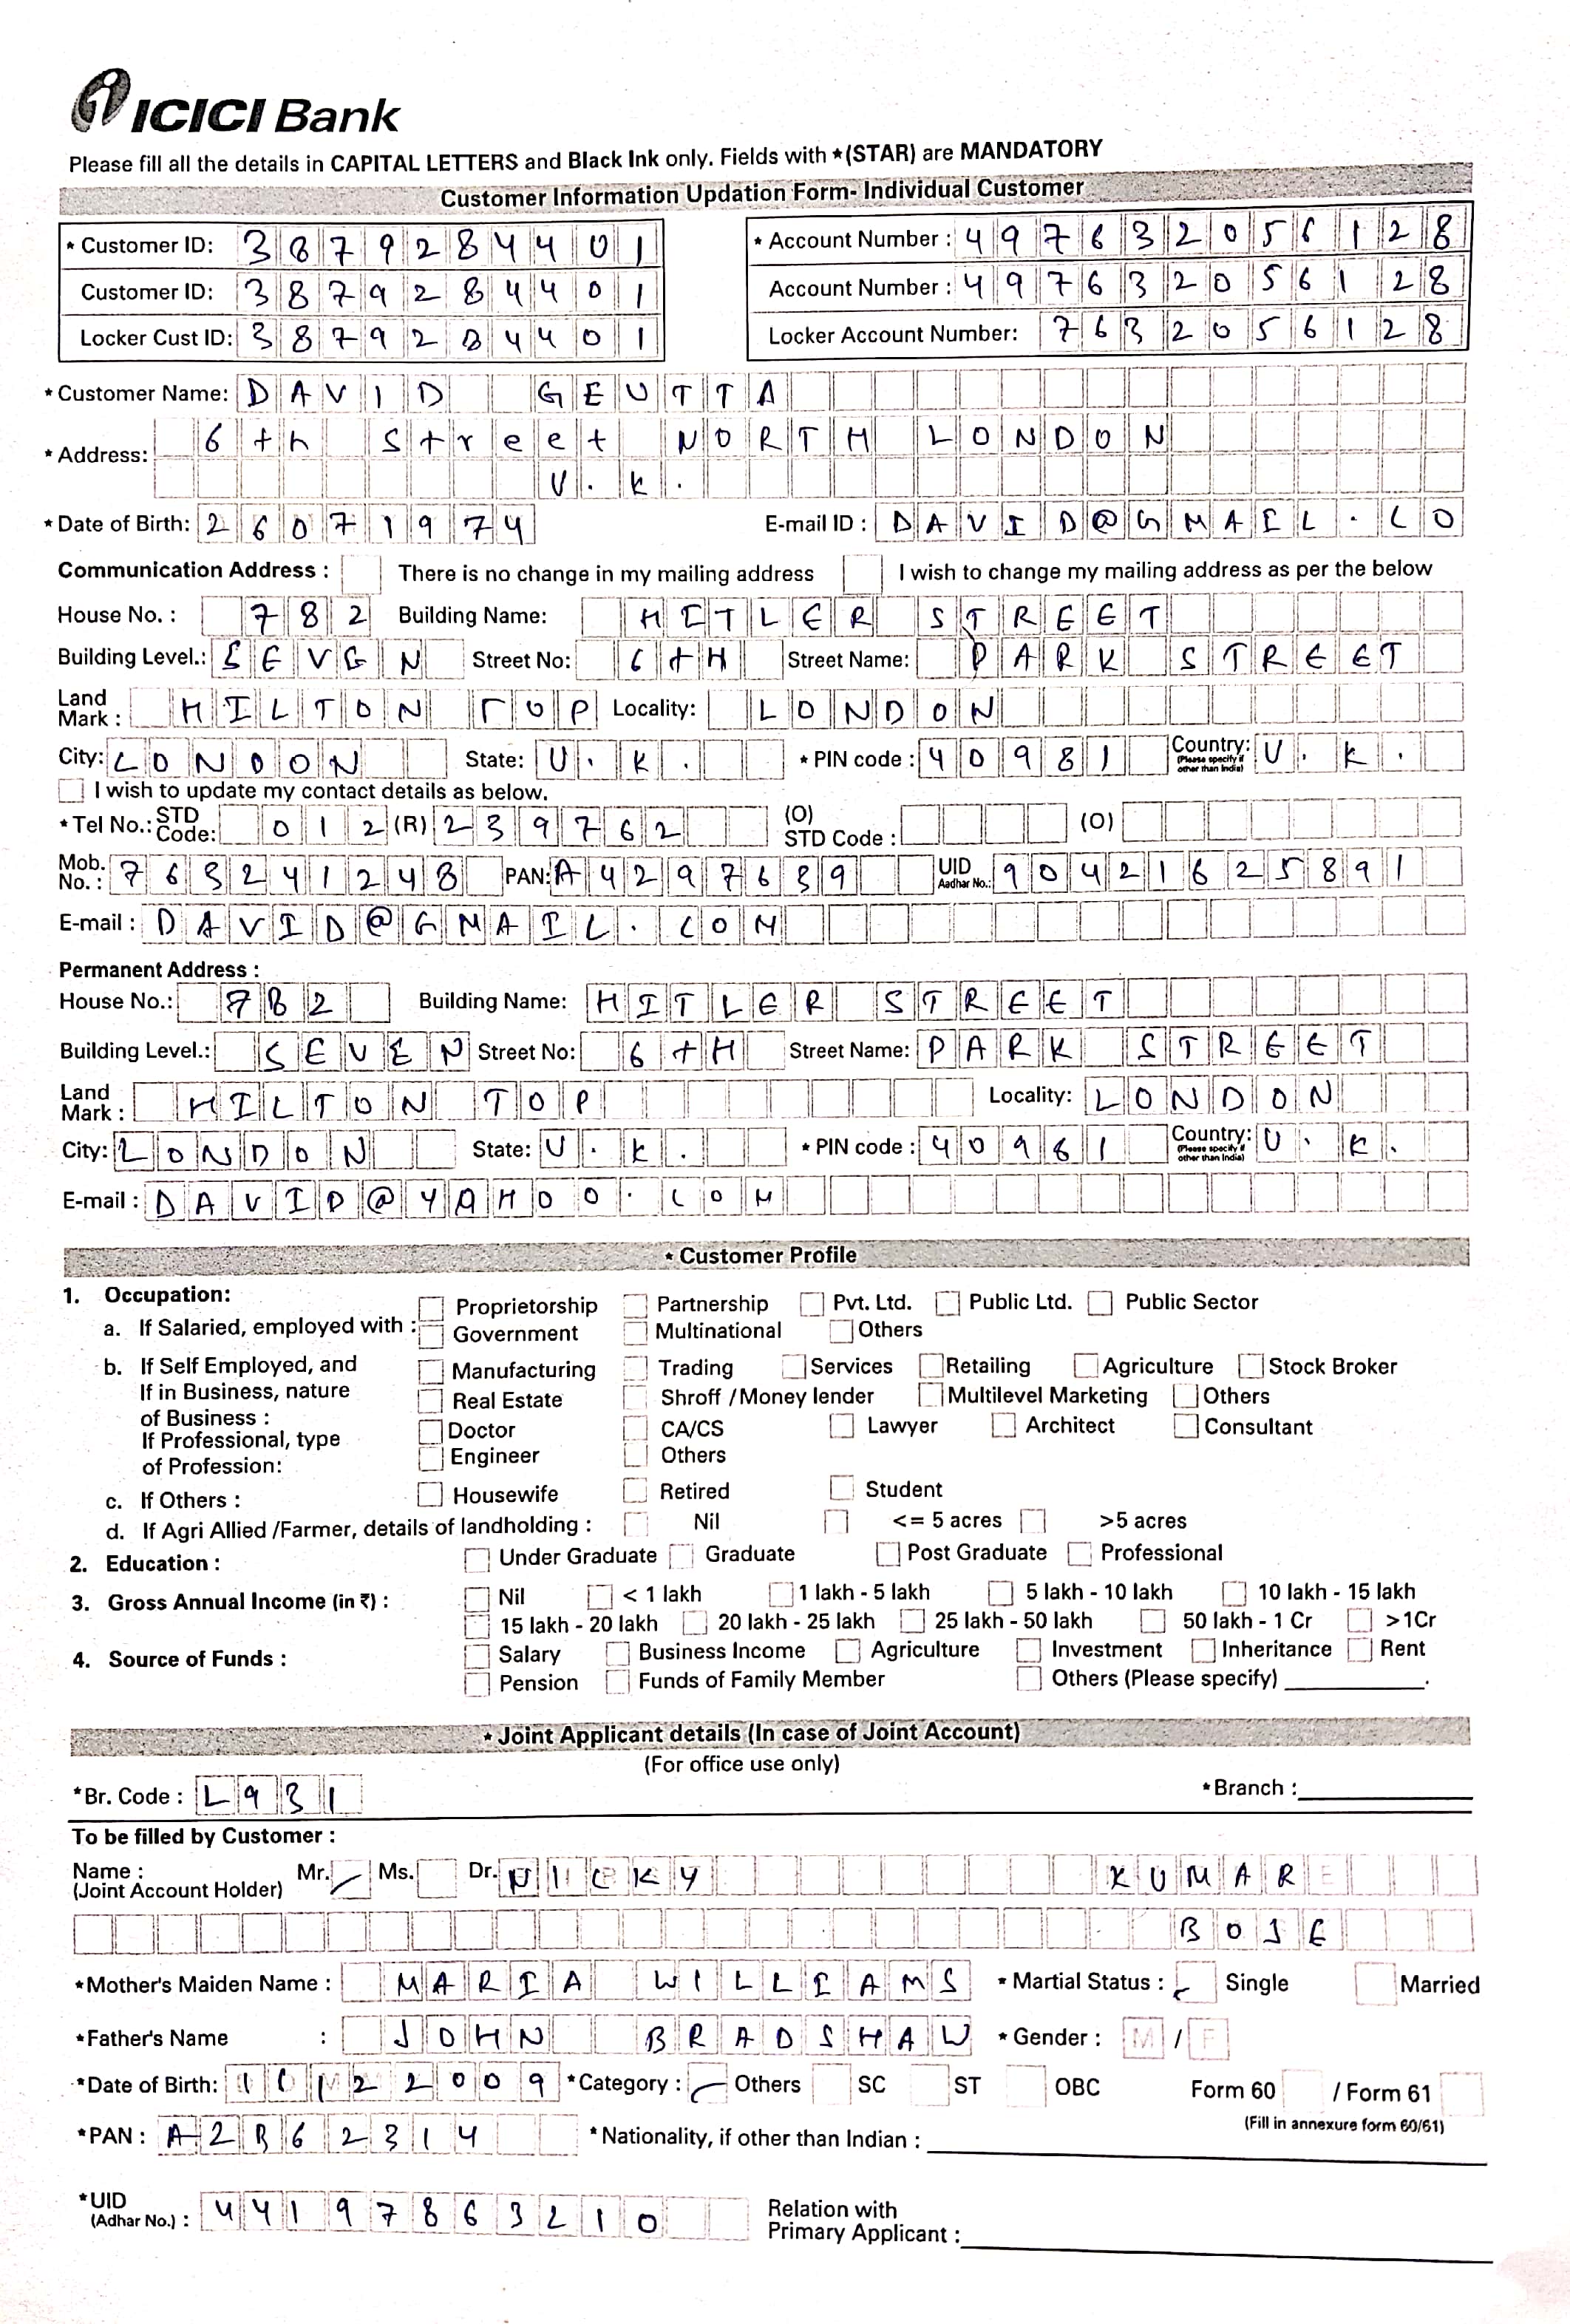 ICICI Bank
Please fill all the details in CAPITAL LETTERS and Black Ink only. Fields with *(STAR) are MANDATORY
Customer Information Updation Form- Individual Customer
* Customer ID: 3879284401 * Account Number : 497632056128
Customer ID: 3879284401 Account Number : 497632056128
Locker Cust ID: 3879284401 Locker Account Number: 7632056128
* Customer Name: DAVID GEUTTA
* Address: 6th Street NORTH LONDON
U.K.
* Date of Birth: 26071974 E-mail ID : DAVID@GMAIL.CO
Communication Address : There is no change in my mailing address I wish to change my mailing address as per the below
House No. : 782 Building Name: HITLER STREET
Building Level.: SEVEN Street No: 6tH Street Name: PARK STREET
Land Mark : HILTON TOP Locality: LONDON
City: LONDON State: U.K. * PIN code : 40981 Country: U.K.
(Please specify if other than India)
I wish to update my contact details as below.
* Tel No.: STD Code: 012 (R) 239762 (O) STD Code : (O)
Mob. No. : 763241248 PAN: A4297639 UID Aadhar No.: 90421625891
E-mail : DAVID@GMAIL.COM
Permanent Address :
House No.: 782 Building Name: HITLER STREET
Building Level.: SEVEN Street No: 6tH Street Name: PARK STREET
Land Mark : HILTON TOP Locality: LONDON
City: LONDON State: U.K. * PIN code : 40981 Country: U.K.
(Please specify if other than India)
E-mail : DAVID@YAHOO.COM
* Customer Profile
1. Occupation:
a. If Salaried, employed with : Proprietorship Partnership Pvt. Ltd. Public Ltd. Public Sector
Government Multinational Others
b. If Self Employed, and Manufacturing Trading Services Retailing Agriculture Stock Broker
If in Business, nature of Business : Real Estate Shroff /Money lender Multilevel Marketing Others
If Professional, type of Profession: Doctor CA/CS Lawyer Architect Consultant
Engineer Others
c. If Others : Housewife Retired Student
d. If Agri Allied /Farmer, details of landholding : Nil <= 5 acres >5 acres
2. Education : Under Graduate Graduate Post Graduate Professional
3. Gross Annual Income (in ₹) : Nil < 1 lakh 1 lakh - 5 lakh 5 lakh - 10 lakh 10 lakh - 15 lakh
15 lakh - 20 lakh 20 lakh - 25 lakh 25 lakh - 50 lakh 50 lakh - 1 Cr >1Cr
4. Source of Funds : Salary Business Income Agriculture Investment Inheritance Rent
Pension Funds of Family Member Others (Please specify)
* Joint Applicant details (In case of Joint Account)
(For office use only)
*Br. Code : L931 * Branch :
To be filled by Customer :
Name : (Joint Account Holder) Mr. Ms. Dr. NICKY KUMAR
BOSE
*Mother's Maiden Name : MARIA WILLIAMS * Martial Status : Single Married
*Father's Name : JOHN BRADSHAW * Gender : M / F
*Date of Birth: *Category : Others SC ST OBC Form 60 / Form 61
(Fill in annexure form 60/61)
*PAN : A2B62314 * Nationality, if other than Indian :
*UID (Adhar No.) : 44197863210 Relation with Primary Applicant :